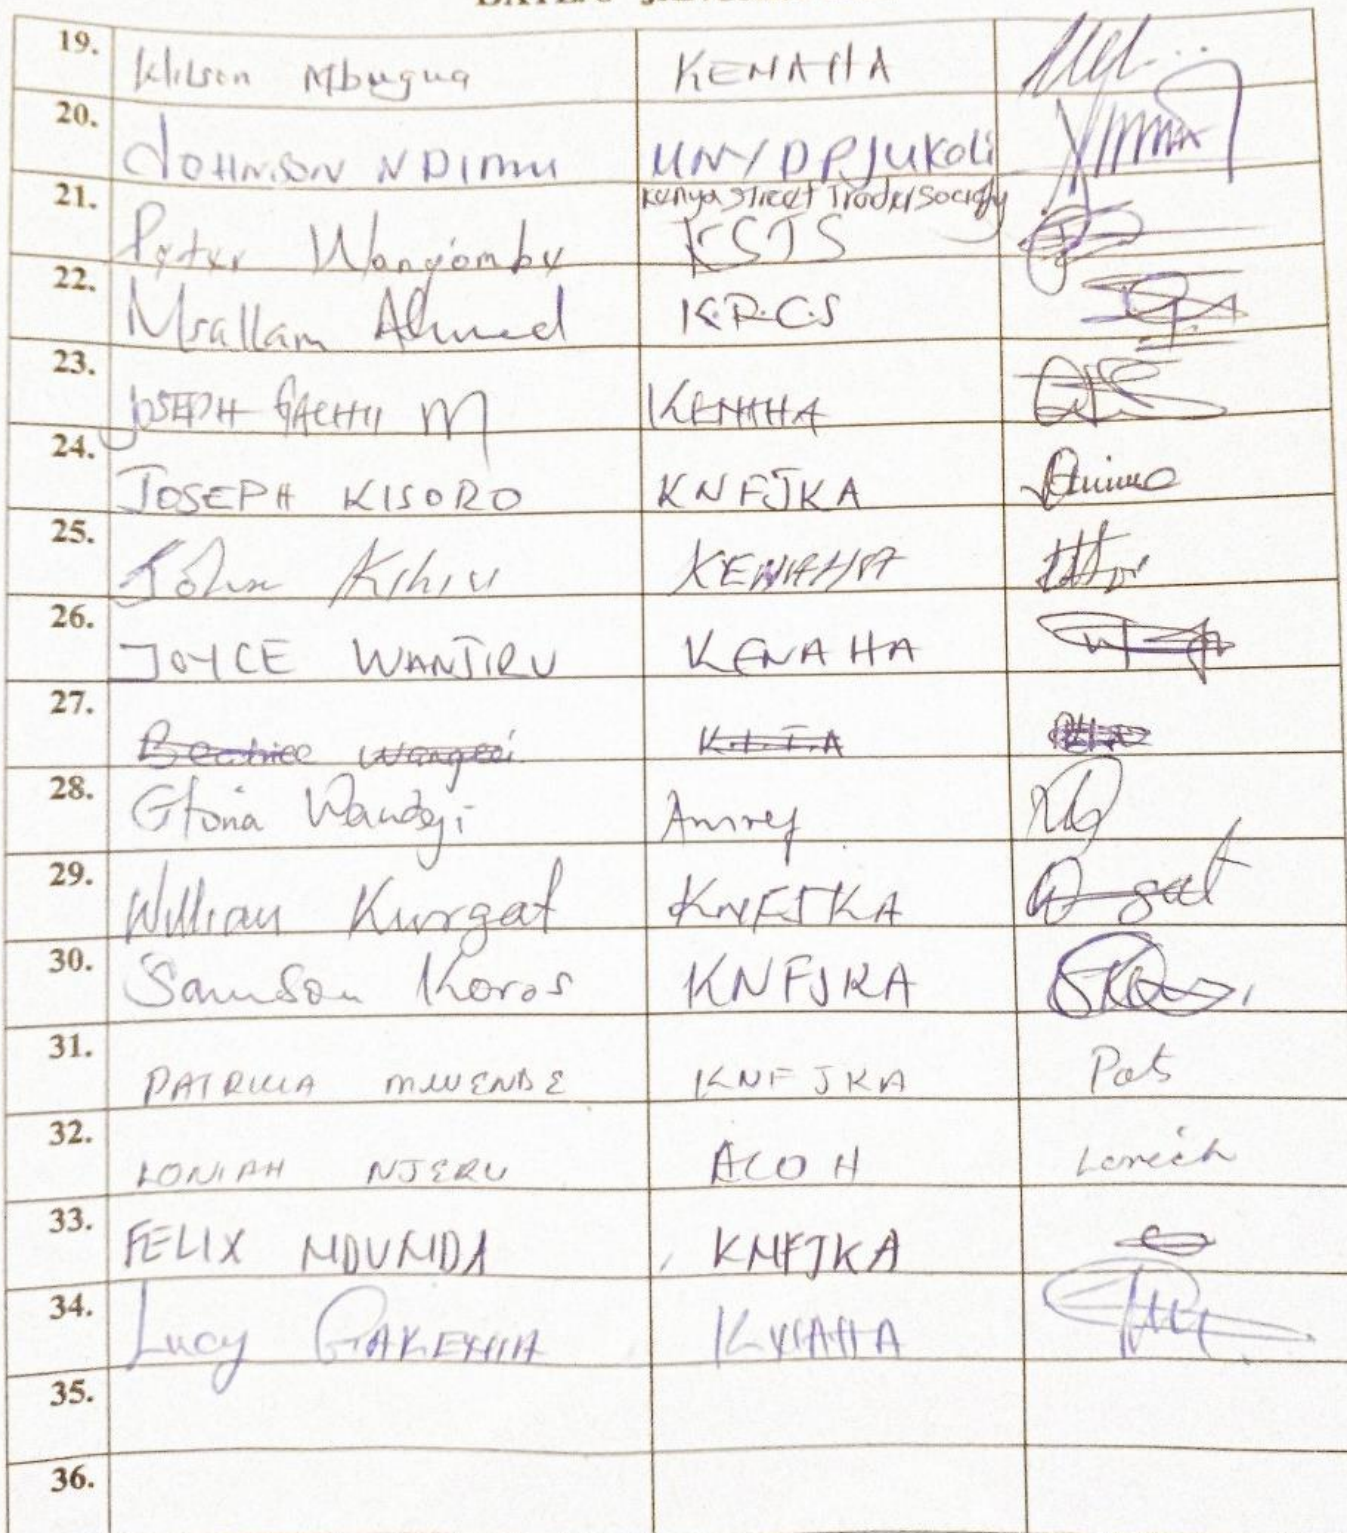 19. Wilson Mbugua KENAHA
20. JOHNSON NDIMU UNY/DPJUKoli
Kenya Street Trader Society
21. Peter Wangombe KSTS
22. Msallam Ahmed K.R.C.S
23. JOSEPH GACHII M KENAHA
24. JOSEPH KISORO KNFJKA
25. John Kihiu KENAHA
26. JOYCE WANJIRU KENAHA
27. Beatrice
28. Gloria Amref
29. William Kurgat KNFJKA
30. Samson Koros KNFJKA
31. PATRICIA MWENDE KNFJKA Pats
32. LONIAH NJERU ACOH Loniah
33. FELIX NDUNDA KNFJKA
34. Lucy GAKENIA
35.
36.